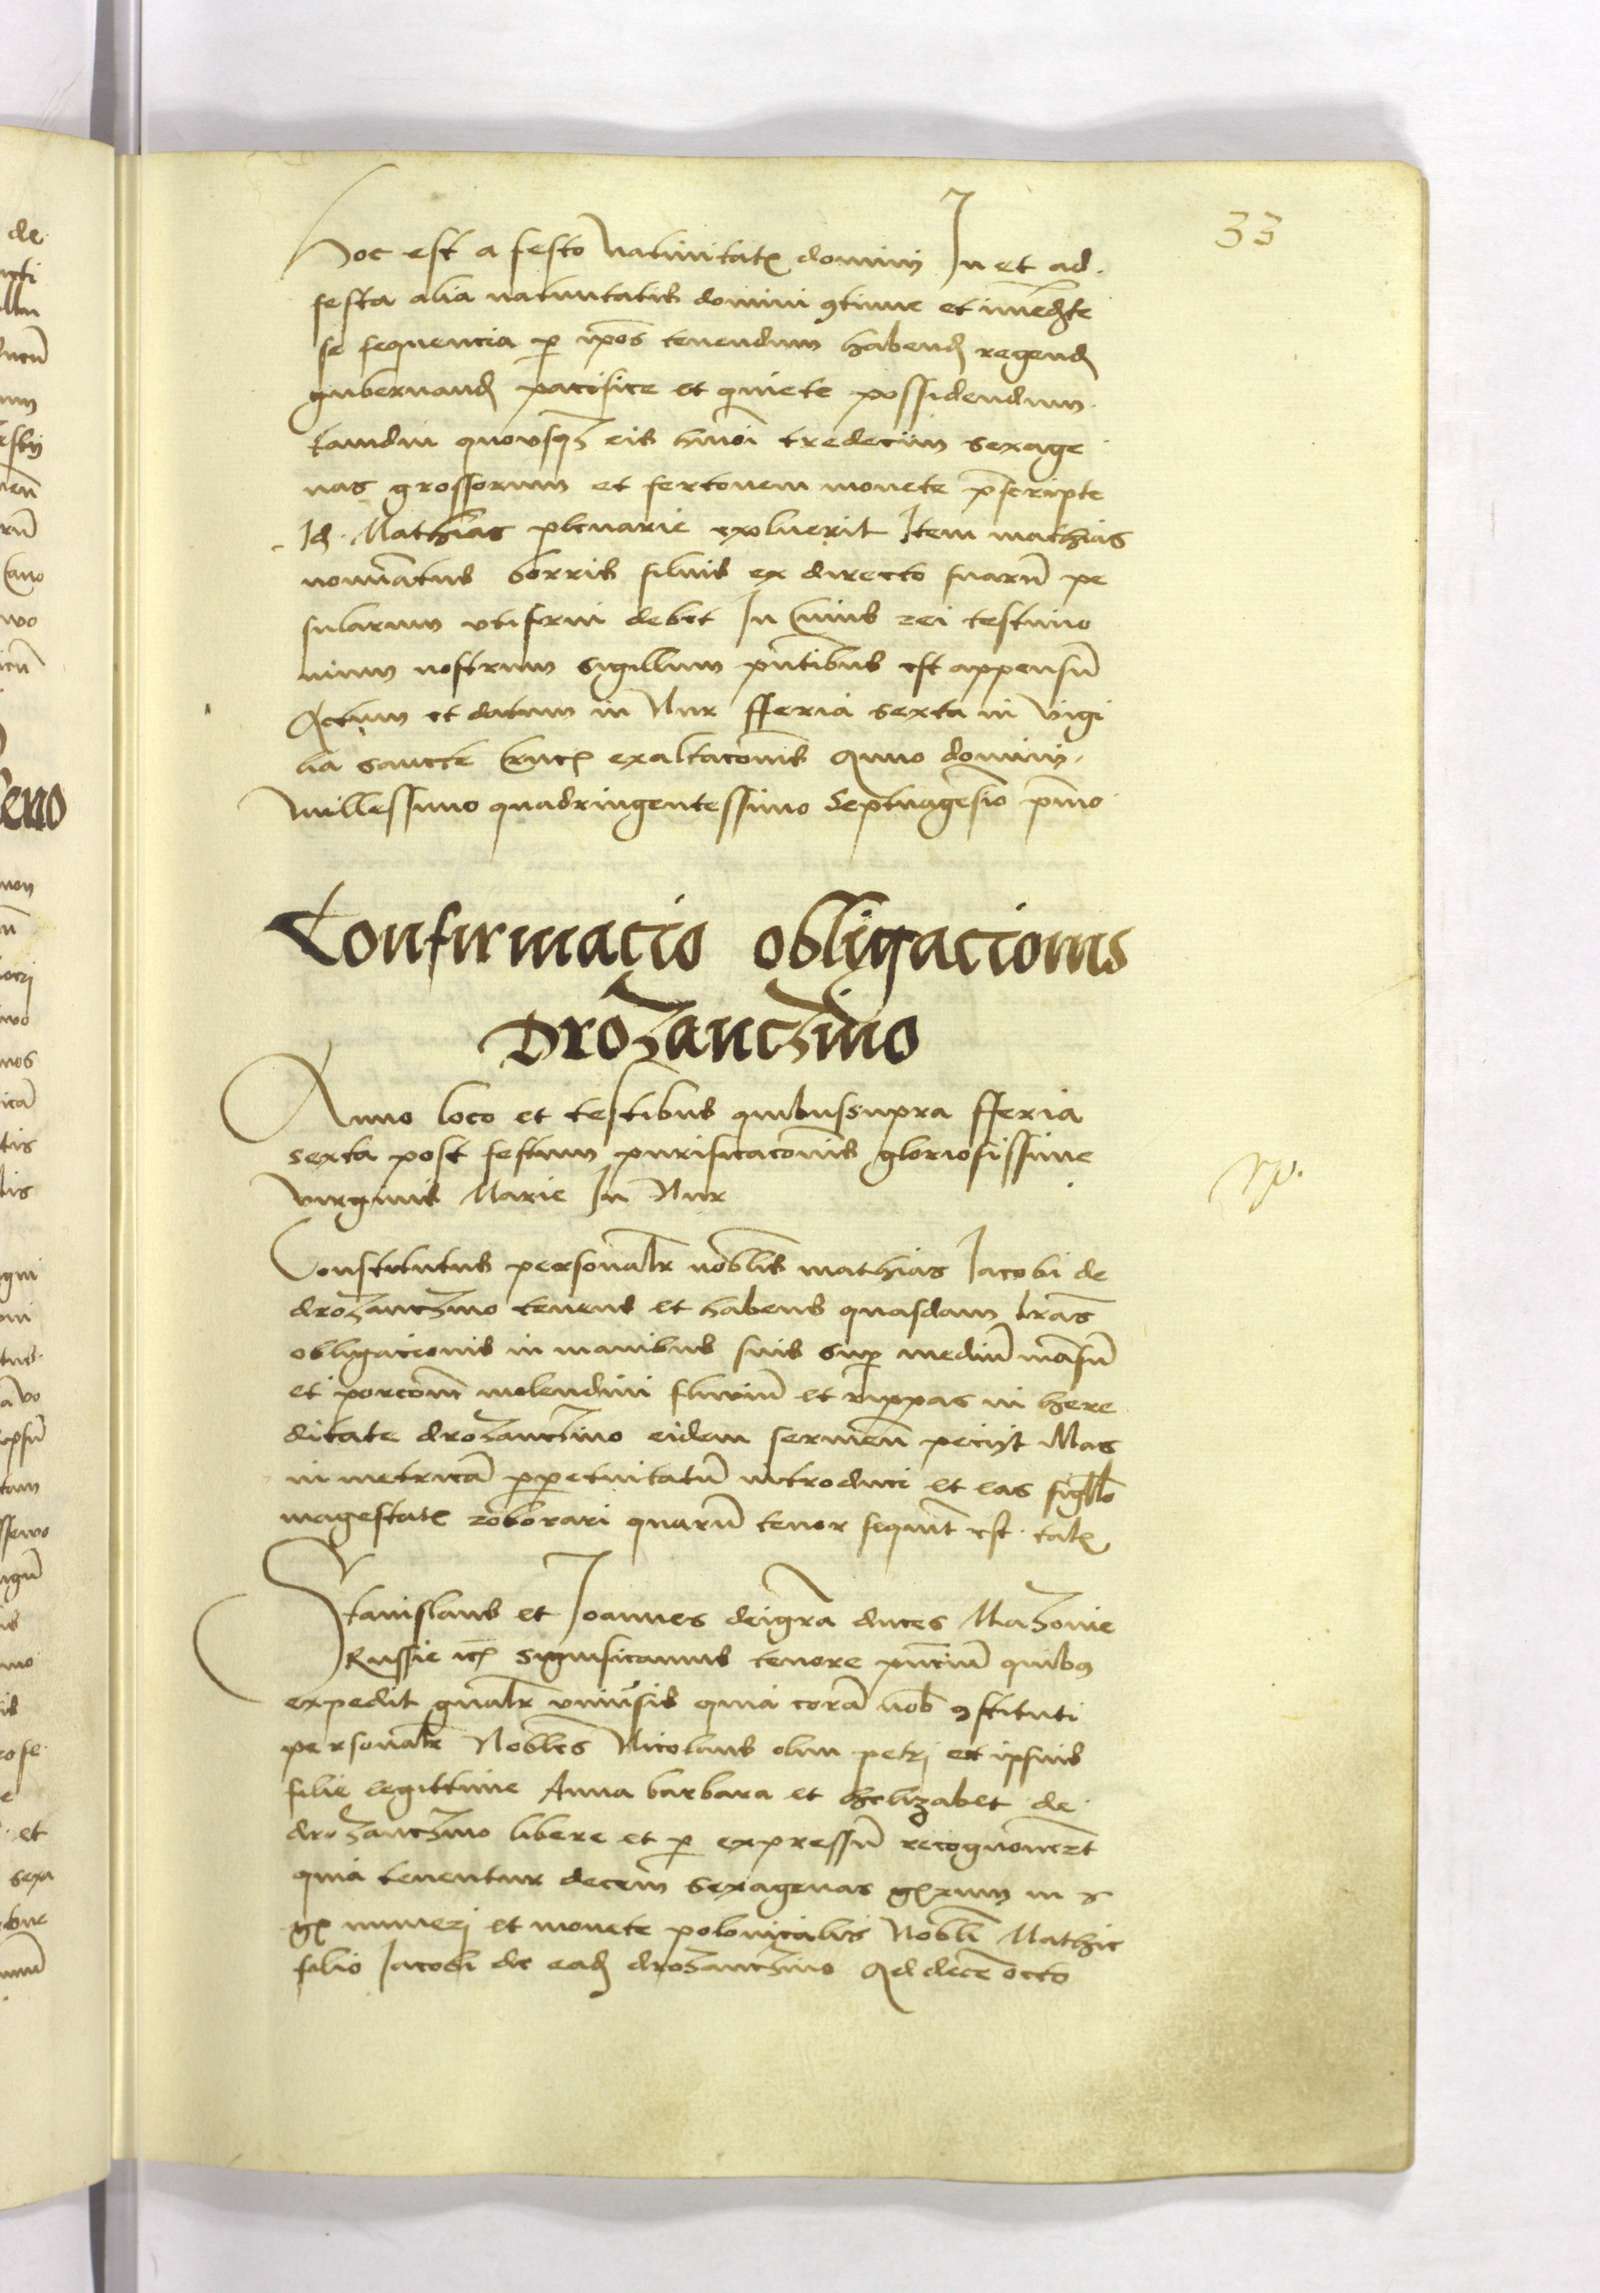 33
Hoc est a festo Nativitatis domini In et ad
festa alia nativitatis domini 9tinue et īmediate
se sequencia p ip̄os tenendum habend regend
gubernand pacifice et quiete possidendum
tamdiu quousqz eis hmōi tredecim sexage
nas grossorum et fertonem monete p̄scripte
Id Mathias plenarie exoluerit Item mathias
nominatus borris silvis ex directo suarū pe
sularum utifrui debet In Cuius rei testimo
nium nostrum sigillum pn̄tibus est appensū
Actum et datum in Nur fferia sexta in vigi
lia sancte Crucis exaltacōnis Anno domini
Millessimo quadringentessimo Septuagesīo pīmo
Confirmacio obligacionis
Drozanczino
Anno loco et testibus quibussupra fferia
sexta post festum purificacōnis gloriosissime
virginis Marie In Nur
Constitutus personalr nobilis mathias Jacobi de
drozanczino tenens et habens quasdam lras
obligacionis in manibus suis sup mediū māsū
et porcōnē molendini fluviū et rippas in here
ditate drozanczino eidem sermen̄ peciyt Illas
in metricā ppetuitatū introduci et eas sigillo
magestatis roborari quarū tenor sequit est talis
Stanislaus et Joannes deigrā duces Mazovie
Russie etc significamus tenore pn̄ciū quibus
expedit gnalr univsis quia corā nob 9stituti
personalr Nobles Nicolaus olim petri et ipsius
filie legittime Anna barbara et helizabet de
drozanczino libere et p expressū recognoverūt
quia tenentur decem sexagenas grorum in
gr numeri et monete polonicalis Nobli Mathie
filio Jacobi de ead drozanczino Ad decē octo